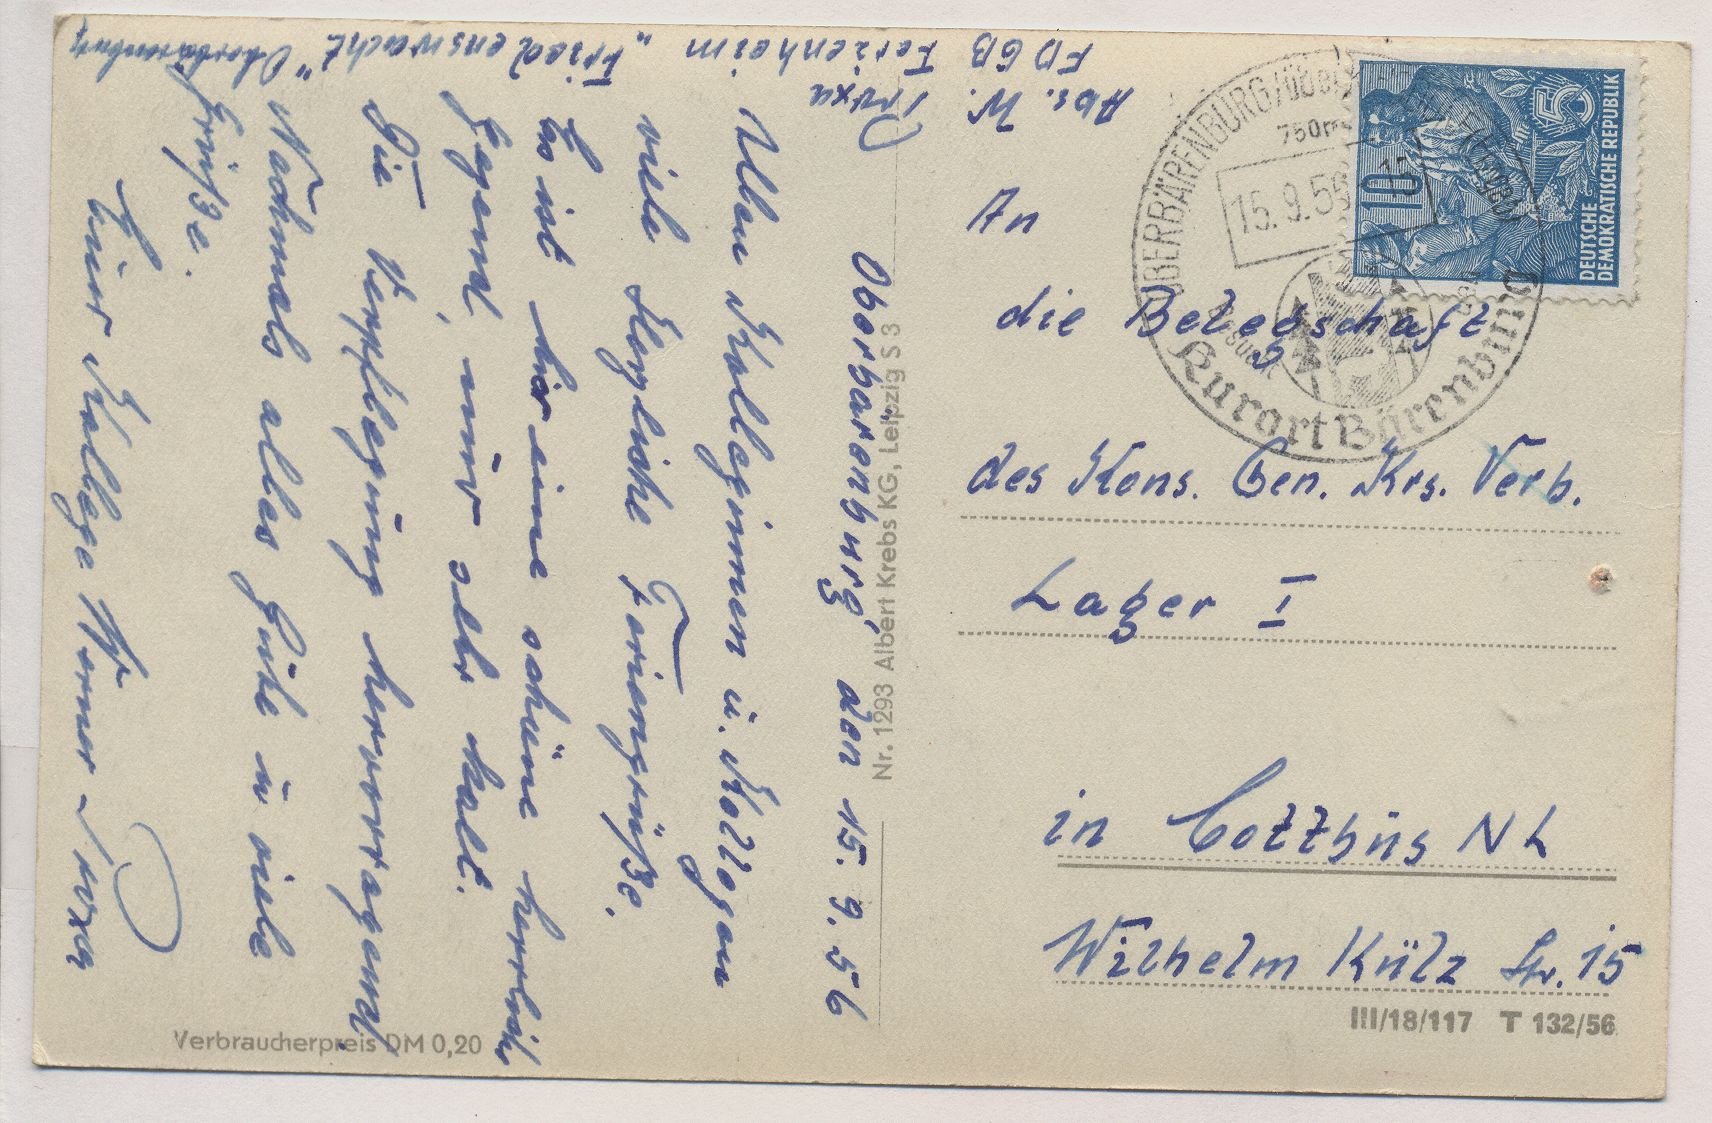 Abs. W. Truxa
FDGB Ferienheim „Friedenswacht" Oberbärenburg
Oberbärenburg, den 15. 9. 56
Allen Kolleginnen u. Kollegen
viele Herzliche Feriengrüße.
Es ist hier eine schöne herrliche
Gegend, nur sehr kalt.
Die Verpflegung hervorragend.
Nochmals alles Gute u viele
Grüße.
Euer Kollege Werner Truxa
Verbraucherpreis DM 0,20
Nr. 1293 Albert Krebs KG, Leipzig S 3
OBERBÄRENBURG/über
750m
15.9.56
Kurort Bärenburg
10 5
DEUTSCHE
DEMOKRATISCHE REPUBLIK
An
die Belegschaft
des Kons. Gen. Krs. Verb.
Lager I
in Cottbus NL
Wilhelm Külz Str. 15
III/18/117 T 132/56